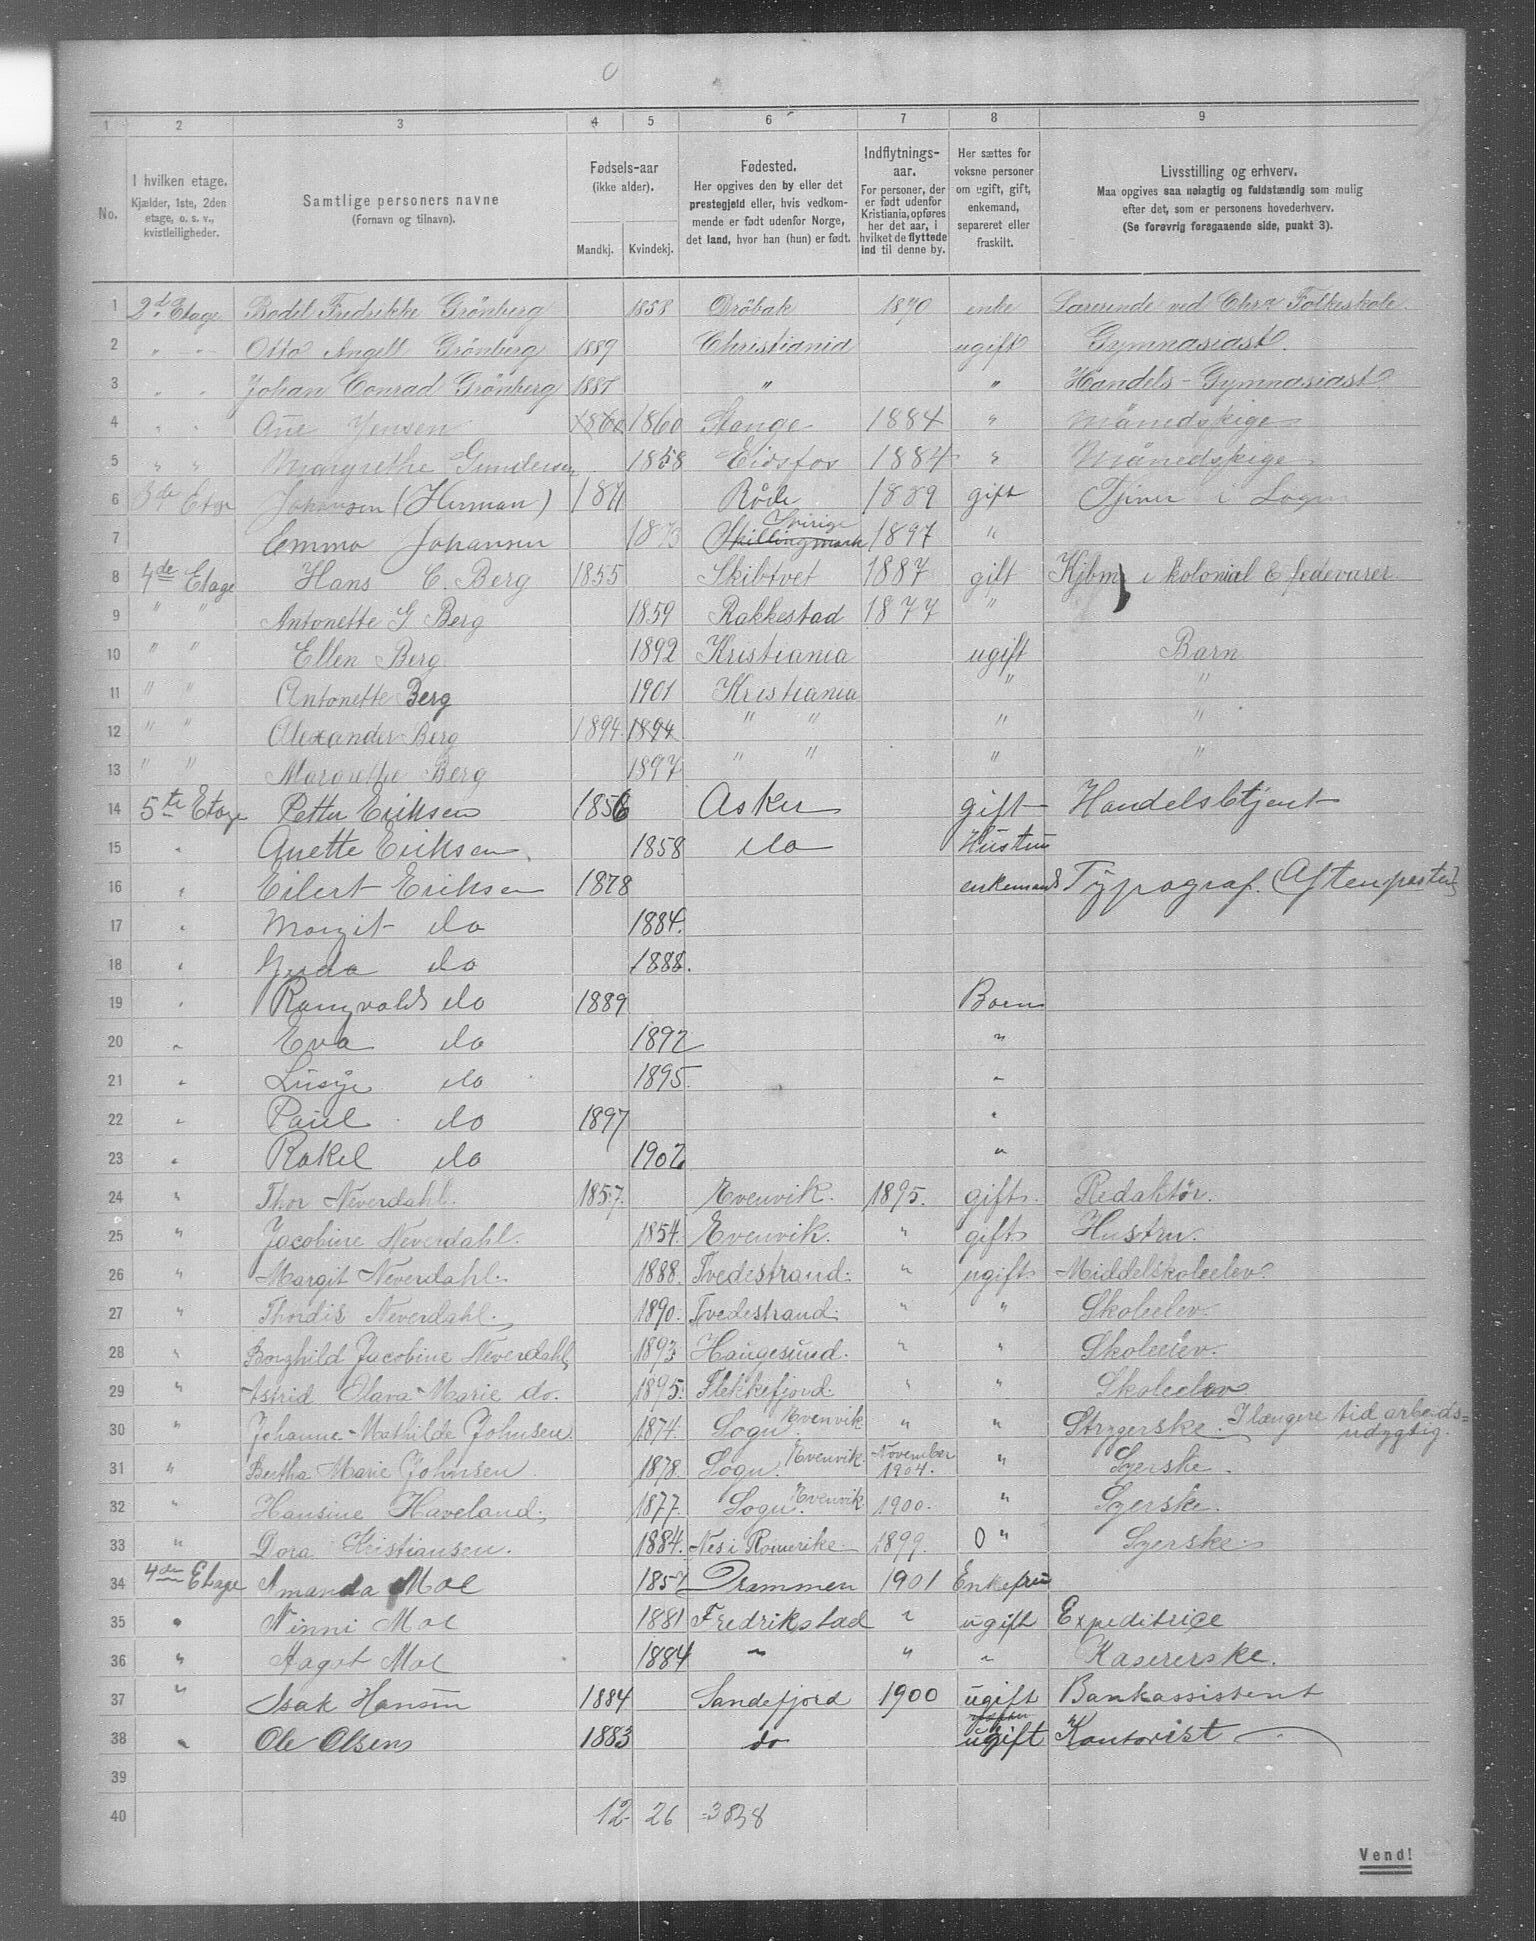 0
1 2 3 4 5 6 7 8 9
No.
I hvilken etage. Kjælder, 1ste, 2den etage, o. s. v., kvistleiligheder.
Samtlige personers navne (Fornavn og tilnavn).
Fødsels-aar (ikke alder).
Mandkj. Kvindekj.
Fødested. Her opgives den by eller det prestegjeld eller, hvis vedkommende er født udenfor Norge, det land, hvor han (hun) er født.
Indflytnings-aar. For personer, der er født udenfor Kristiania, opføres her det aar, i hvilket de flyttede ind til denne by.
Her sættes for voksne personer om ugift, gift, enkemand, separeret eller fraskilt.
Livsstilling og erhverv. Maa opgives saa nøiagtig og fuldstændig som mulig efter det, som er personens hovederhverv. (Se forøvrig foregaaende side, punkt 3).
1 2d. Etage Bodil Fredrikke Grönberg 1858 Dröbak 1870 enke Lærerinde ved Chr.a Folkeskole.
2 " " Otto Angell Grönberg 1889 Christiania ugift Gymnasiast.
3 " " Johan Conrad Grönberg 1887 " " Handels-Gymnasiast.
4 " " Ane Jensen 1860 1860 Stange 1884 " Månedspige
5 " " Margrethe Gundersen 1858 Eidsfos 1884 " Månedspige
6 3de Etage Johansen (Herman) 1871 Råde 1889 gift Tjener i Logen
7 Emma Johansen 1873 Skillingmark Sverige 1897 "
8 4de Etage Hans C. Berg 1855 Skibtvet 1887 gift Kjbm i kolonial & fedevarer
9 " " Antonette G Berg 1859 Rakkestad 1877 "
10 " " Ellen Berg 1892 Kristiania ugift Barn
11 " " Antonette Berg 1901 Kristiania " "
12 " " Alexander Berg 1894 1894 " " " "
13 " " Margrethe Berg 1897 " " " "
14 5te Etage Petter Eriksen 1856 Asker gift Handelsbetjent
15 " Anette Eriksen 1858 do Hustru
16 " Eilert Eriksen 1878 enkemand Typograf. (Aftenposten)
17 " Margit do 1884.
18 " Gerda do 1888.
19 " Rangvald do 1889 Barn
20 " Eva do 1892 "
21 " Lusye do 1895. "
22 " Paul do 1897 "
23 " Rakel do 1902 "
24 " Thor Neverdahl. 1857. Evenvik. 1895. gift. Redaktör.
25 " Jacobine Neverdahl. 1854. Evenvik. " gift. Hustru.
26 " Margit Neverdahl. 1888. Tvedestrand. " ugift Middelskoleelev.
27 " Thordis Neverdahl. 1890. Tvedestrand. " " Skoleelev.
28 " Borghild Jacobine Neverdahl 1893 Haugesund. " " Skoleelev.
29 " Astrid Olava-Marie do. 1895. Flekkefjord. " " Skoleelev
30 " Johanne-Mathilde Johnsen 1874. Sogn. Evenvik " " Strygerske. I længere tid arbeids=udygtig.
31 " Bertha Marie Johnsen 1878. Sogn. Evenvik November 1904. " Syerske.
32 " Hansine Haveland. 1877. Sogn. Evenvik 1900. " Syerske.
33 " Dora Kristiansen. 1884. Nes i Romerike 1899. 0 " Syerske.
34 4de Etage Amanda Moe 1857 Drammen 1901 Enkefru
35 " Ninni Moe 1881 Fredrikstad " ugift Expeditrice
36 " Aagot Moe 1884 " " " Kasererske.
37 " Isak Hansen 1884 Sandefjord 1900 ugift Bankassistent
38 " Ole Olsen 1883 do ugift Kontorist
39
40 12 26 =38 38
Vend!